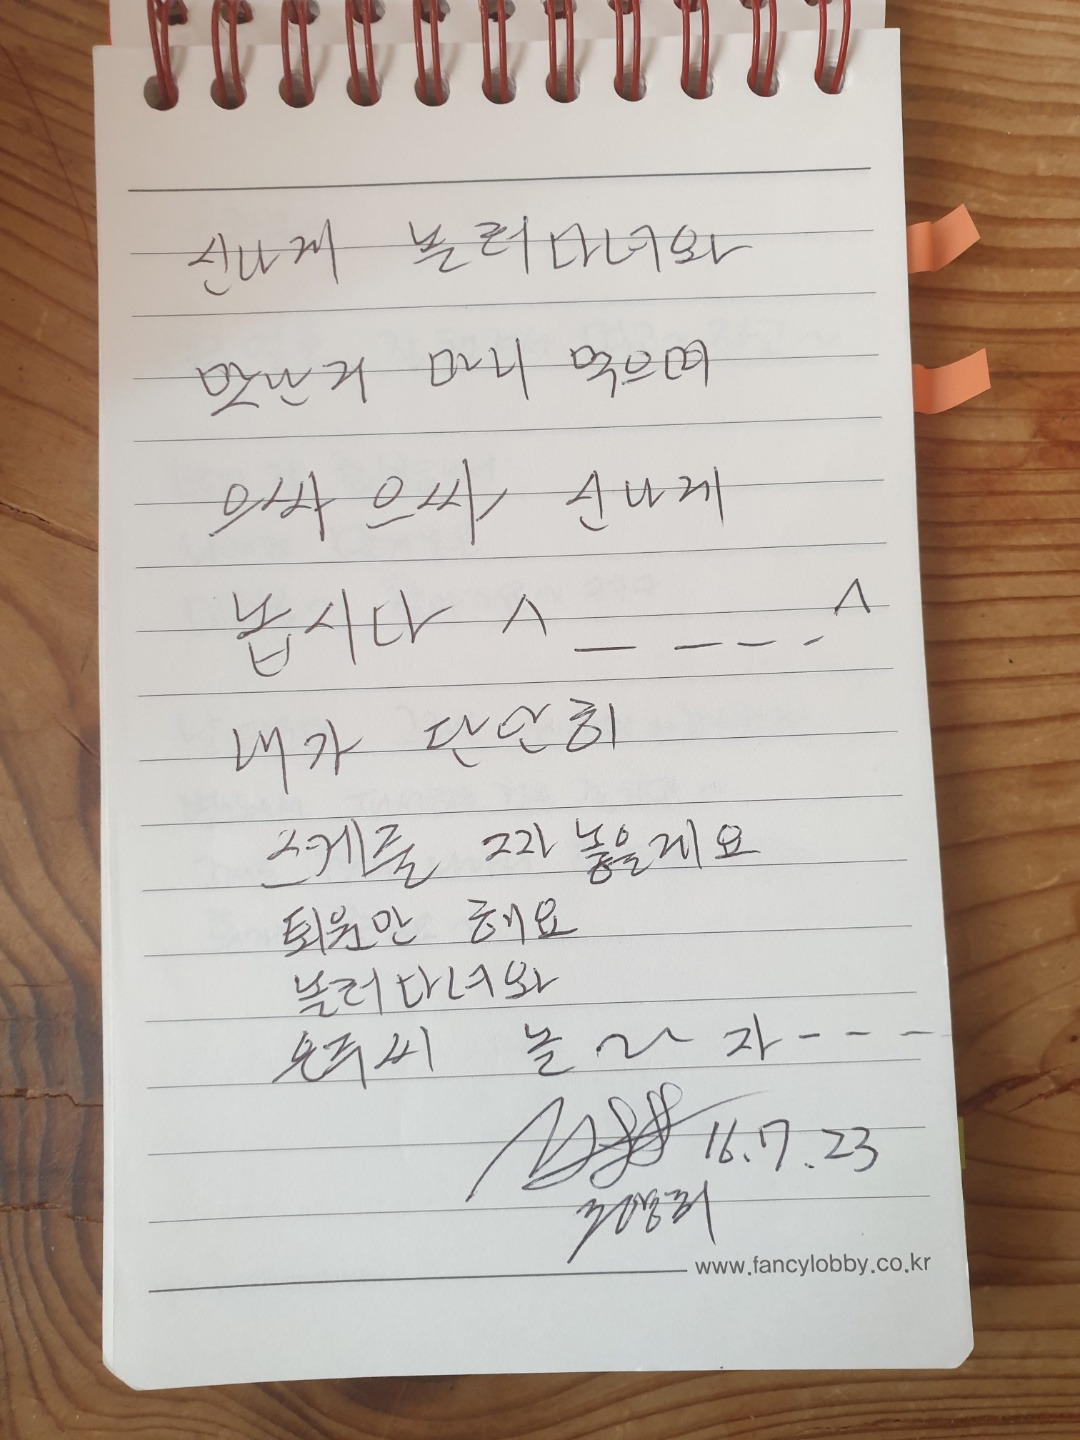 신나게 놀러다녀와
맛난거 마니 먹으며
으싸 으싸 신나게
놉시다 ^_ _ _ _ ^
내가 단안히
스케쥴 짜 놓을게요
퇴원만 해요
놀러다녀와
은주씨 놀~자----
16.7.23
www.fancylobby.co.kr